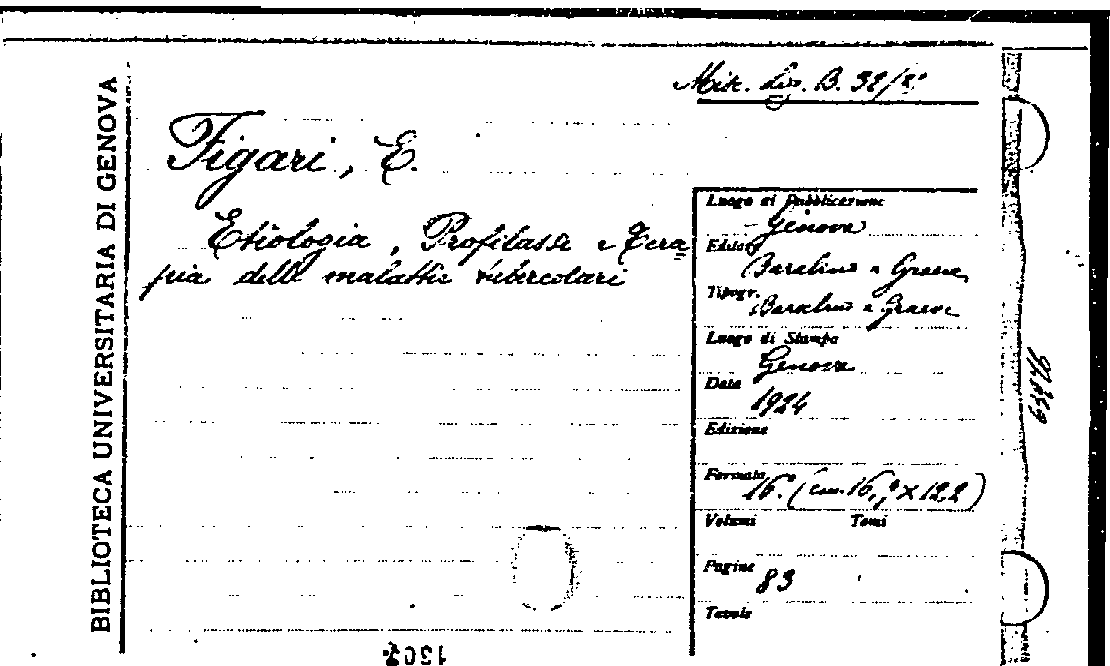 BIBLIOTECA UNIVERSITARIA DI GENOVA
B. 32/
Figari, E.
Etiologia, Profilassi e Tera
pia delle malattie tubercolari
Luogo di Pubblicazione
Genova
Editore
Barabino e Graeve
Tipogr.
Barabino e Graeve
Luogo di Stampa
Genova
Data
1924
Edizione
Formato
16.° (cm. 16, × 12,2)
Volumi Tomi
Pagine
83
Tavole